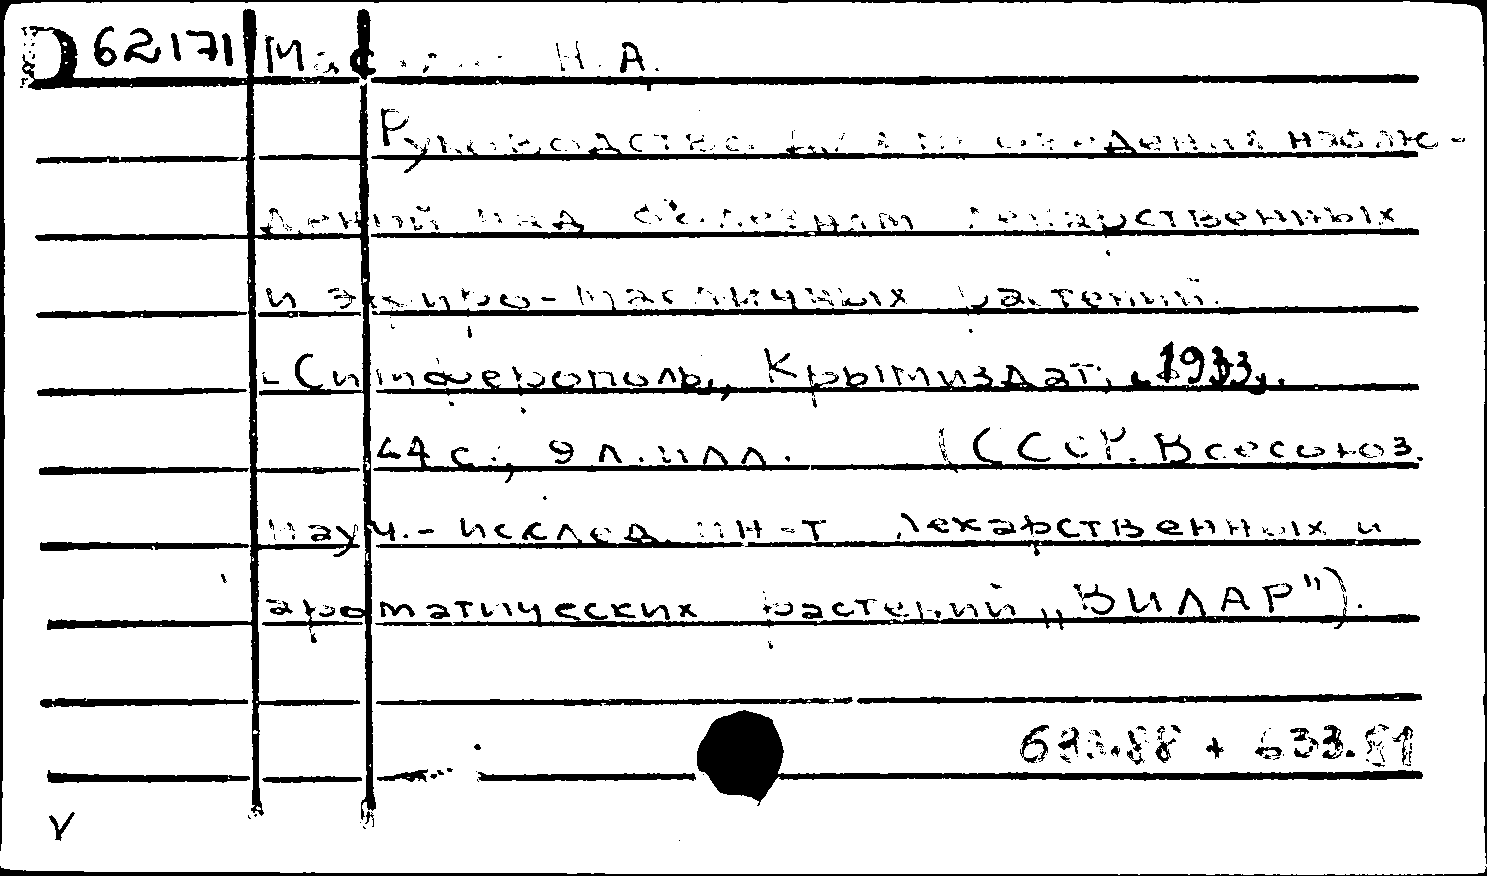 D 62171 Н. А.
Руководство для проведения наблю-
дений над болезням лекарственных
и эфиро-масличных растений.
-Симферополь, Крымиздат, 1933.
44 с., 9 л.илл. (СССР. Всесоюз.
науч.-исслед. ин-т лекарственных и
ароматических растений „ВИЛАР").
633.88 + 633.81
V